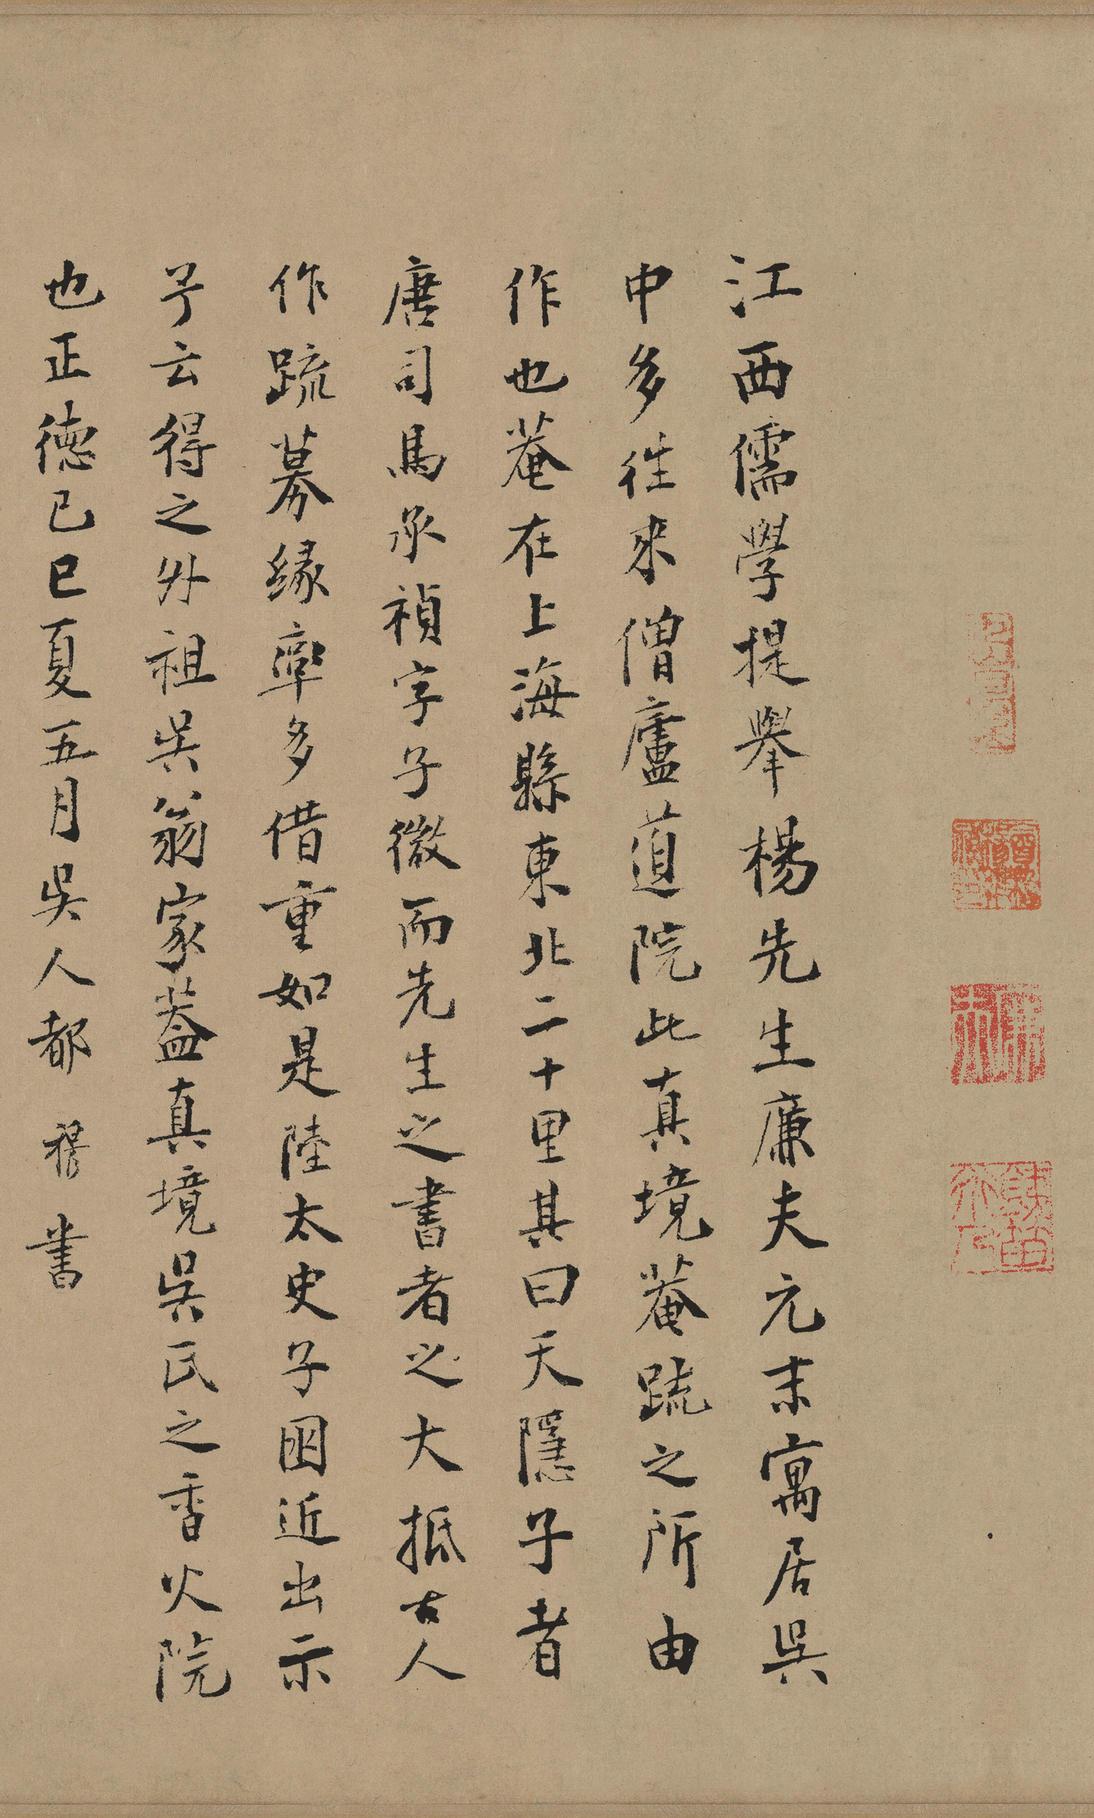 江西儒學提舉楊先生廉夫元末寓居吳
中多往來僧廬道院此真境菴疏之所由
作也菴在上海縣東北二十里其曰天隱子者
唐司馬承禎字子微而先生之書者之大抵古人
作疏募緣率多借重如是陸太史子困近出示
予云得之外祖吳翁家蓋真境吳氏之香火院
也正德己巳夏五月吳人都穆書